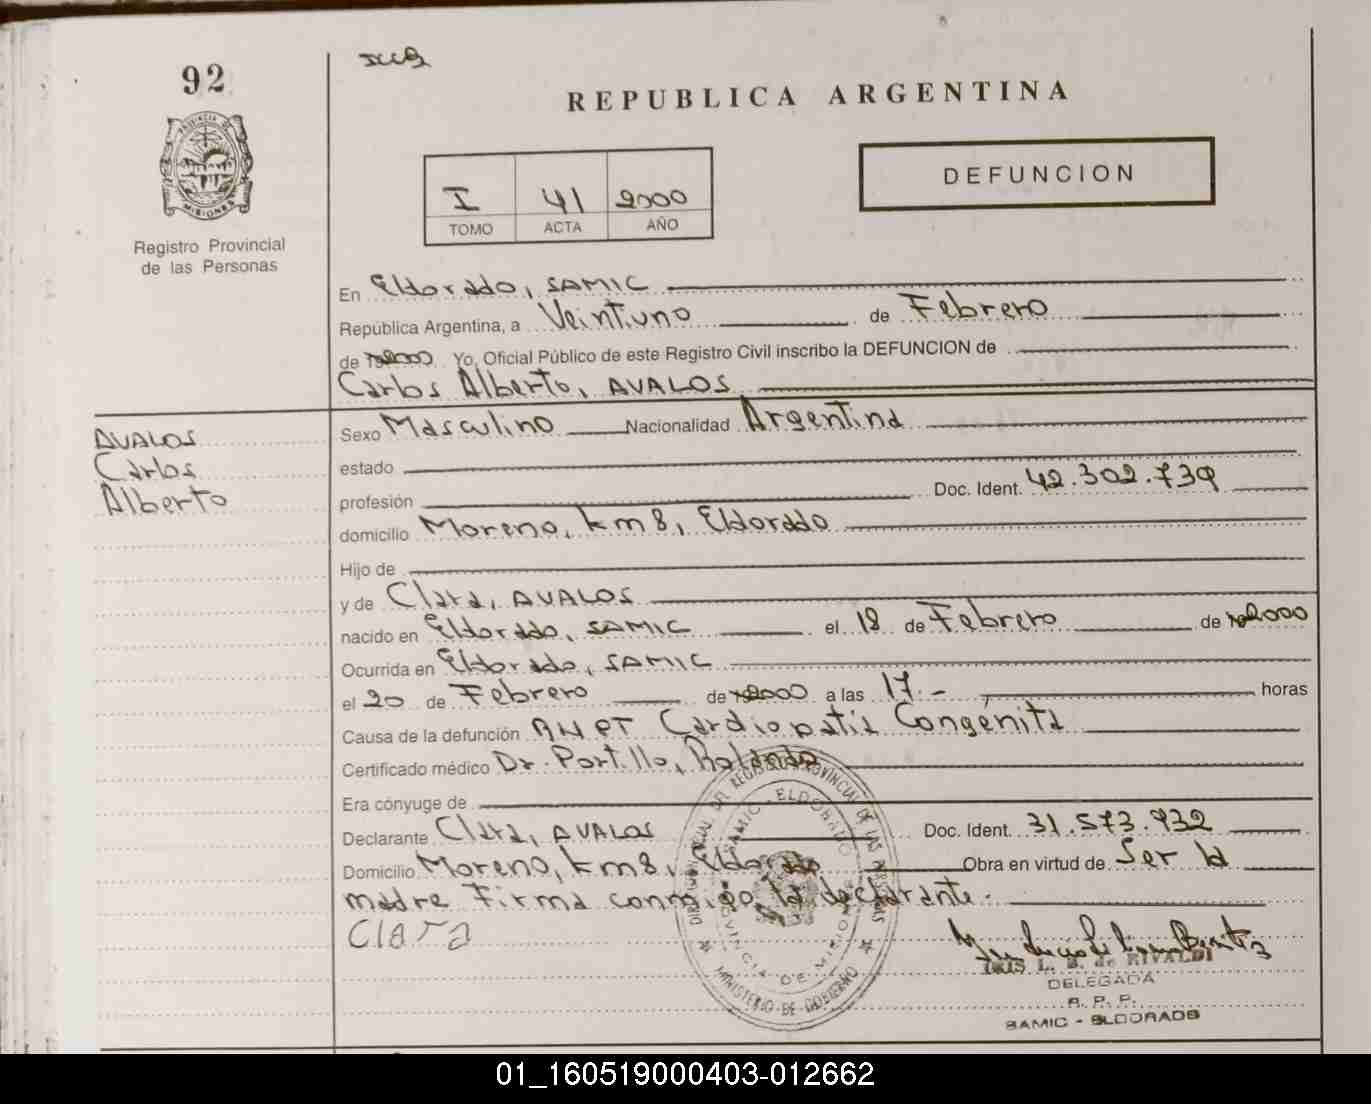 92
REPUBLICA ARGENTINA
PROVINCIA DE
MISIONES
Registro Provincial
de las Personas
DEFUNCION
I 41 2000
TOMO ACTA AÑO
En Eldorado, SAMIC
República Argentina, a Veintiuno de Febrero
de 2000 Yo, Oficial Público de este Registro Civil inscribo la DEFUNCION de
Carlos Alberto, AVALOS
AVALOS
Carlos
Alberto
Sexo Masculino Nacionalidad Argentina
estado
profesión Doc. Ident. 42.302.739
domicilio Moreno, km 8, Eldorado
Hijo de
y de Clara, AVALOS
nacido en Eldorado, SAMIC el 18 de Febrero de 2000
Ocurrida en Eldorado, SAMIC
el 20 de Febrero de 2000 a las 17.- horas
Causa de la defunción RNPT Cardiopatía Congénita
Certificado médico Dr. Portillo, Rolando
Era cónyuge de
Declarante Clara, AVALOS Doc. Ident. 31.573.932
Domicilio Moreno, km 8, Eldorado Obra en virtud de Ser la
madre Firma conmigo la declarante.
Clara
DIRECCION GENERAL DEL REGISTRO PROVINCIAL DE LAS PERSONAS
SAMIC - ELDORADO
PROVINCIA DE MISIONES
MINISTERIO DE GOBIERNO
IRIS L. B. de RIVALDI
DELEGADA
R. P. P.
SAMIC - ELDORADO
01_160519000403-012662